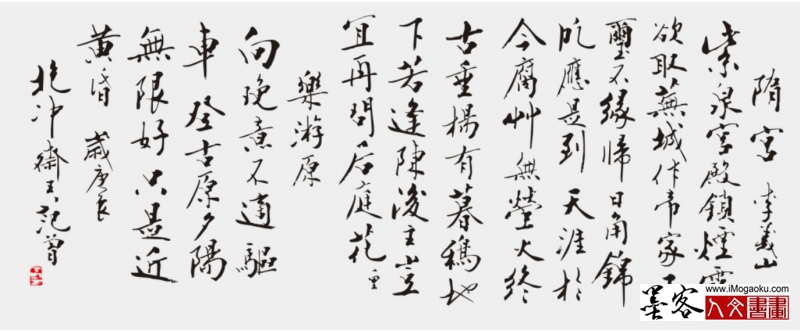 隋宮 李義山
紫泉宮殿鎖煙霞
欲取蕪城作帝家玉
璽不緣歸日角錦
帆應是到天涯於
今腐艸無螢火終
古垂楊有暮鴉地
下若逢陳後主豈
宜再問后庭花
樂游原
向晚意不適驅
車登古原夕陽
無限好只是近
黃昏 歲庚辰
抱冲齋主范曾
www.iMogaoku.com
墨客人文書畫